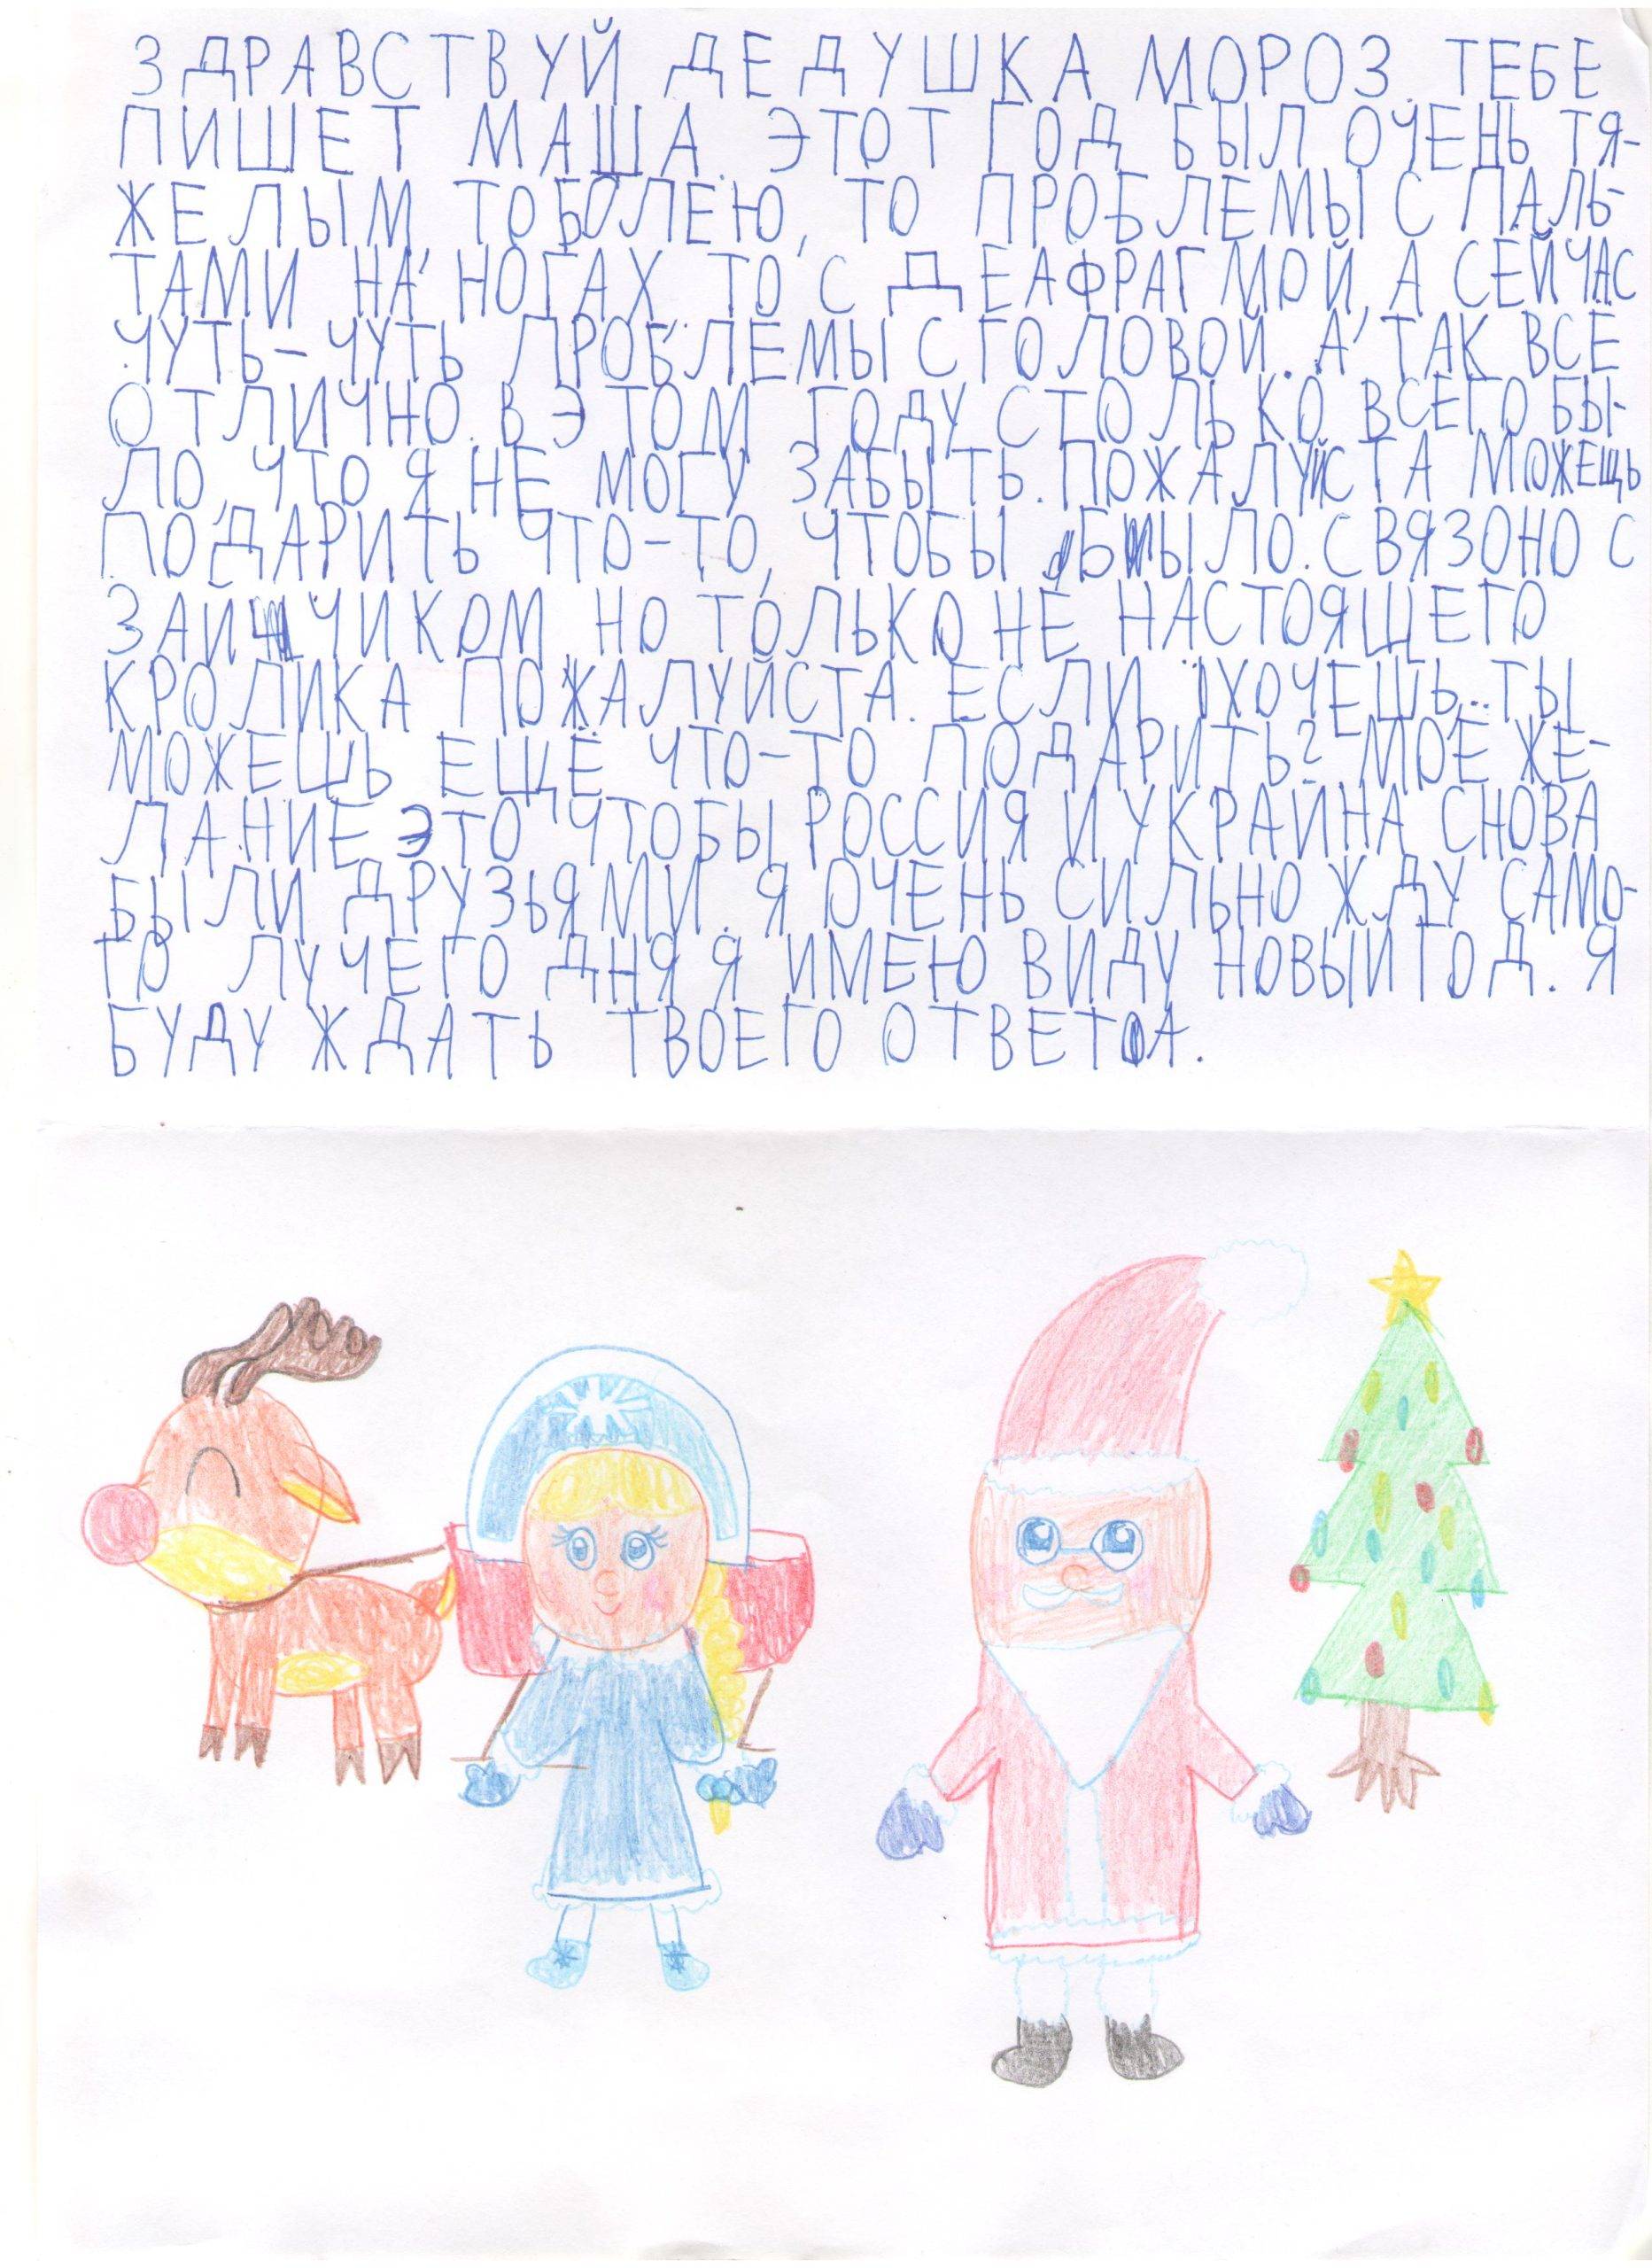 ЗДРАВСТВУЙ ДЕДУШКА МОРОЗ. ТЕБЕ
ПИШЕТ МАША. ЭТОТ ГОД БЫЛ ОЧЕНЬ ТЯ-
ЖЕЛЫМ, ТО БОЛЕЮ, ТО ПРОБЛЕМЫ С ПАЛЬ-
ТАМИ НА НОГАХ, ТО С ДЕАФРАГМОЙ, А СЕЙЧАС
ЧУТЬ-ЧУТЬ ПРОБЛЕМЫ С ГОЛОВОЙ. А ТАК ВСЕ
ОТЛИЧНО. В ЭТОМ ГОДУ СТОЛЬКО ВСЕГО БЫ-
ЛО, ЧТО Я НЕ МОГУ ЗАБЫТЬ. ПОЖАЛУЙСТА МОЖЕЩЬ
ПОДАРИТЬ ЧТО-ТО, ЧТОБЫ БЫЛО СВЯЗОНО С
ЗАЙЧИКОМ НО ТОЛЬКО НЕ НАСТОЯЩЕГО
КРОЛИКА ПОЖАЛУЙСТА. ЕСЛИ ХОЧЕШЬ ТЫ
МОЖЕШЬ ЕЩЁ ЧТО-ТО ПОДАРИТЬ? МОЁ ЖЕ-
ЛАНИЕ ЭТО ЧТОБЫ РОССИЯ И УКРАИНА СНОВА
БЫЛИ ДРУЗЬЯМИ. Я ОЧЕНЬ СИЛЬНО ЖДУ САМО-
ГО ЛУЧЕГО ДНЯ Я ИМЕЮ ВИДУ НОВЫЙ ГОД. Я
БУДУ ЖДАТЬ ТВОЕГО ОТВЕТА.